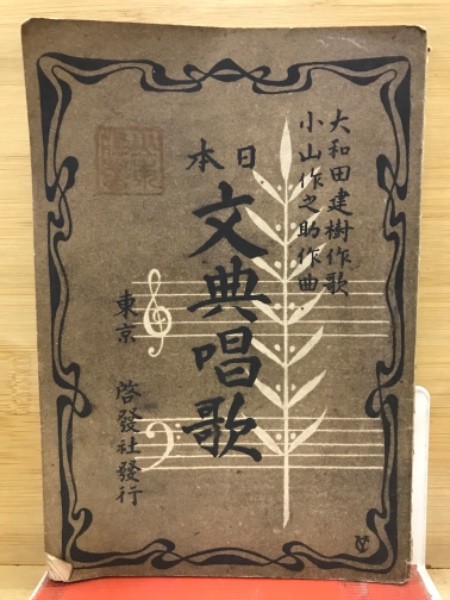 大和田建樹作歌
小山作之助作曲
日本
文典唱歌
東京 啓發社發行